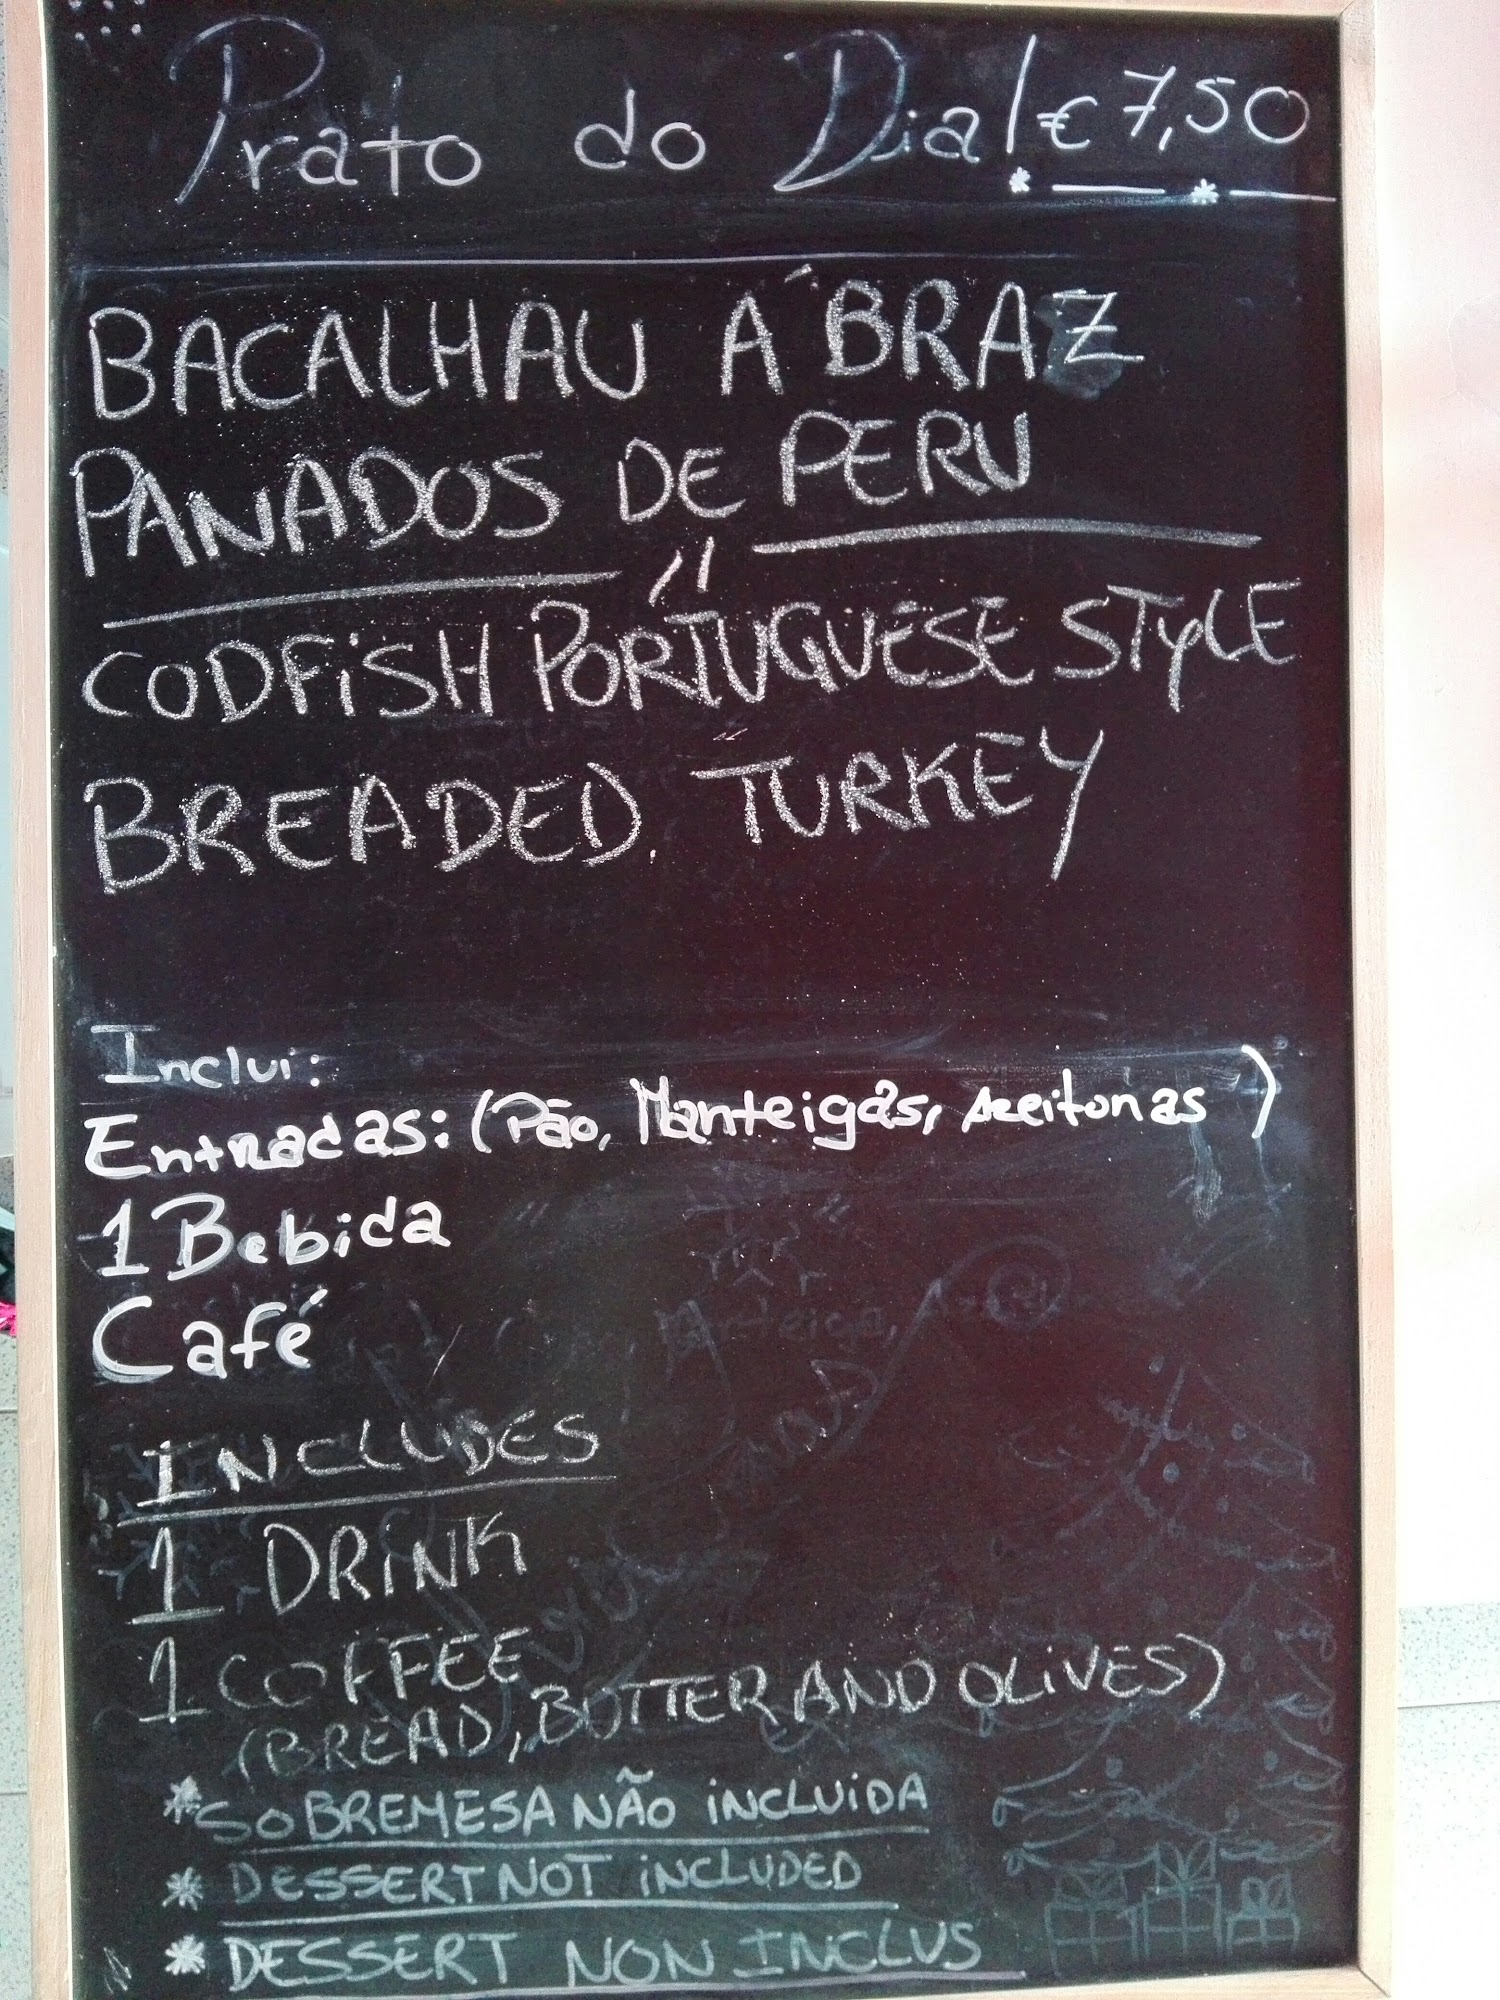 Prato do Dia! € 7,50
BACALHAU Á BRAZ
PANADOS DE PERU
CODFiSH PORTUGUESE STyLE
BREADED. TURKEY
Inclui:
Entradas: (Pão, Manteigas, Azeitonas)
1 Bebida
Café
INCLUDES
1 DRiNK
1 COFFEE
(BREAD, BUTTER AND OLiVES)
*SOBREMESA NÃO iNCLUiDA
* DESSERT NOT iNCLUDED
* DESSERT NON INCLUS